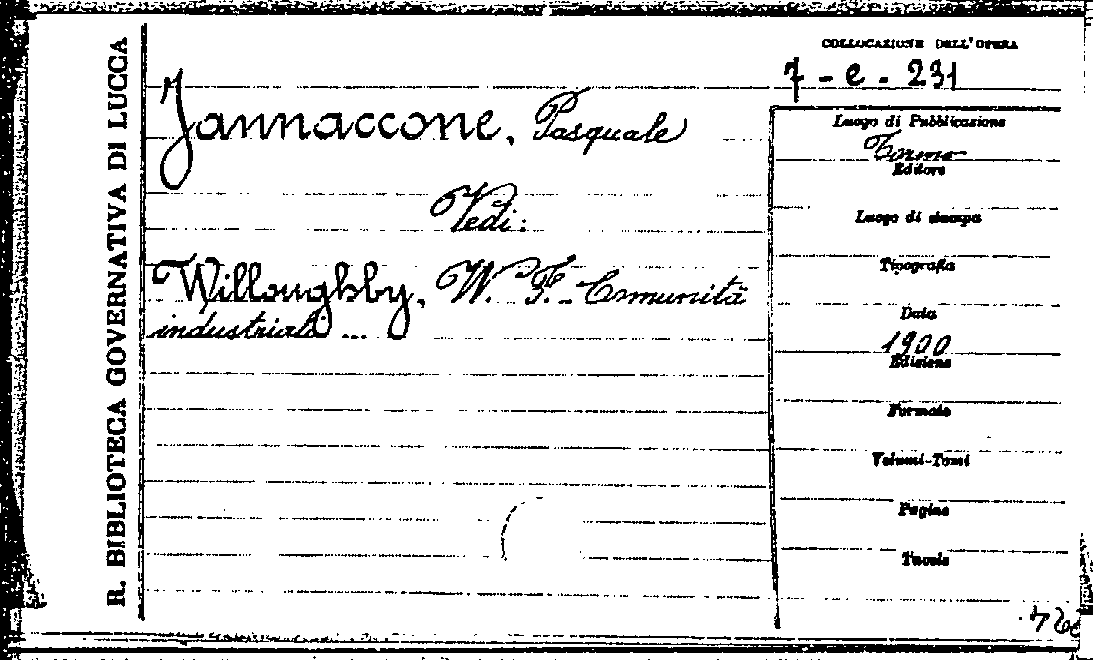 R. BIBLIOTECA GOVERNATIVA DI LUCCA
COLLOCAZIONE DELL'OPERA
7 - e - 231
Jannaccone, Pasquale
Vedi:
Willoughby, W. F. - Comunità
industriali ...
Luogo di Pubblicazione
Torino
Editore
Luogo di stampa
Tipografia
Data
1900
Edizione
Formato
Volumi-Tomi
Pagine
Tavole